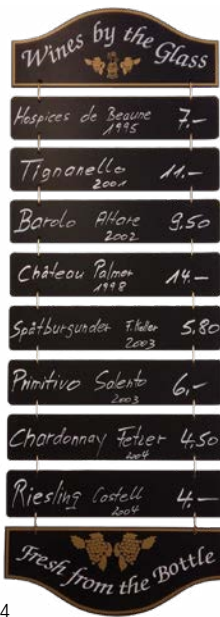 Wines by the Glass
Hospices de Beaune 7.-
1995
Tignanello 11.-
2001
Barolo Altare 9.50
2002
Château Palmer 14.-
1998
Spätburgunder F. Keller 5.80
2003
Primitivo Salento 6.-
2003
Chardonnay Fetzer 4,50
2004
Riesling Castell 4.-
2004
Fresh from the Bottle
4